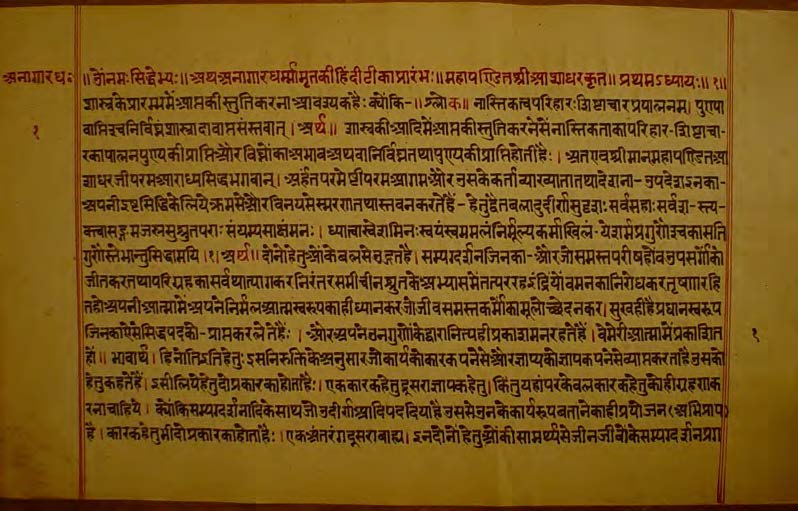 अनागारध॰
॥ॐनमःसिद्धेभ्यः॥अथअनागारधर्म्मामृतकीहिंदीटीकाप्रारंभः॥महापण्डितश्रीआशाधरकृत॥प्रथमऽध्यायः॥१॥
शास्त्रकेप्रारम्भमेंआप्तकीस्तुतिकरनाआवश्यकहै:क्योंकि-॥श्लोक॥नास्तिकत्वपरिहारःशिष्टाचारप्रपालनम्।पुण्यावाप्तिश्चनिर्विघ्नंशास्त्रादावाप्तसंस्तवात्।अर्थ॥शास्त्रकीआदिमेंआप्तकीस्तुतिकरनेसेंनास्तिकताकापरिहार-शिष्टाचा-
१
रकापालनपुण्यकीप्राप्तिऔरविघ्नोंकाअभावअथवानिर्विघ्नतथापुण्यकीप्राप्तिहोतीहै:।अतएवश्रीमान्महापण्डितआ
शाधरजीपरमआराध्यसिद्धभगवान्।अर्हंतपरमेष्ठीपरमआगमऔरउसकेकर्ताव्याख्यातातथादेशना-उपदेशइनका-
अपनीइष्टसिद्धिकेलियेक्रमसेऔरविनयसेस्मरणतथास्तवनकरतेहैं-हेतुद्वैतबलादुदीर्णसुदृशःसर्वंसहाःसर्वशस्त्य-
क्त्वासङ्गमजस्रसुश्रुतपराःसंयम्यसाक्षंमनः।ध्यात्वास्वेशमिनःस्वयंस्वममलंनिर्मूल्यकर्माखिलं-येशर्मप्रगुणैश्चकासति
गुणैस्तेभान्तुसिद्धामयि।१।अर्थ॥दोनोहेतुओंकेबलसेउद्गतहै।सम्यग्दर्शनजिनका-औरजोसमस्तपरीषहोंवउपसर्गोंको
जीतकरतथापरिग्रहकासर्वथात्यागकरनिरंतरसमीचीनश्रुतकेअभ्यासमेंतत्पररहइंद्रियोंवमनकानिरोधकरतृष्णारहि
तहोअपनीआत्मामेंअपनेनिर्मलआत्मस्वरुपकाहीध्यानकरजोजीवसमस्तकर्मोकामूलोच्छेदनकर।सुखहीहैप्रधानस्वरूप
जिनकाऐसेसिद्धपदको-प्राप्तकरलेतेहैं:।औरअपनेउनगुणोंकेद्वारानित्यहीप्रकाशमानरहतेहैं।वेमेरीआत्मामेंप्रकाशित
१
हों॥भावार्थ।हिनोतिइतिहेतुःइसनिरुक्तिकेअनुसारजोकार्यकोकारकपनेसेऔरज्ञाप्यकोज्ञापकपनेसेव्याप्तकरताहैउसको
हेतुकहतेहैं।इसीलियेहेतुदोप्रकारकाहोताहै:।एककारकहेतुदूसराज्ञापकहेतु।किंतुयहांपरकेवलकारकहेतुकोहीग्रहणक
रनाचाहिये।क्योंकिसम्यग्दर्शनादिकेसाथजोउदीर्णआदिपददियाहैउससेउनकेकार्यरुपबतानेकाहीप्रयोजन(अभिप्राय)
है।कारकहेतुभीदोप्रकारकाहोताहै:।एकअंतरंगदूसराबाह्य।इनदोनोहेतुओंकीसामर्थ्यसेजीनजीवोंकेसम्यग्दर्शनप्रग